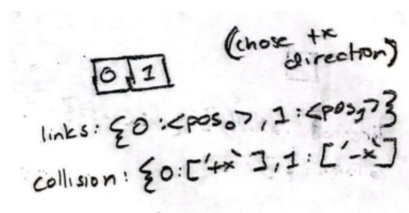 (chose +x
direction)
0 1
links: {0:<pos₀>, 1:<pos₁>}
collision: {0:['+x'], 1: ['-x']